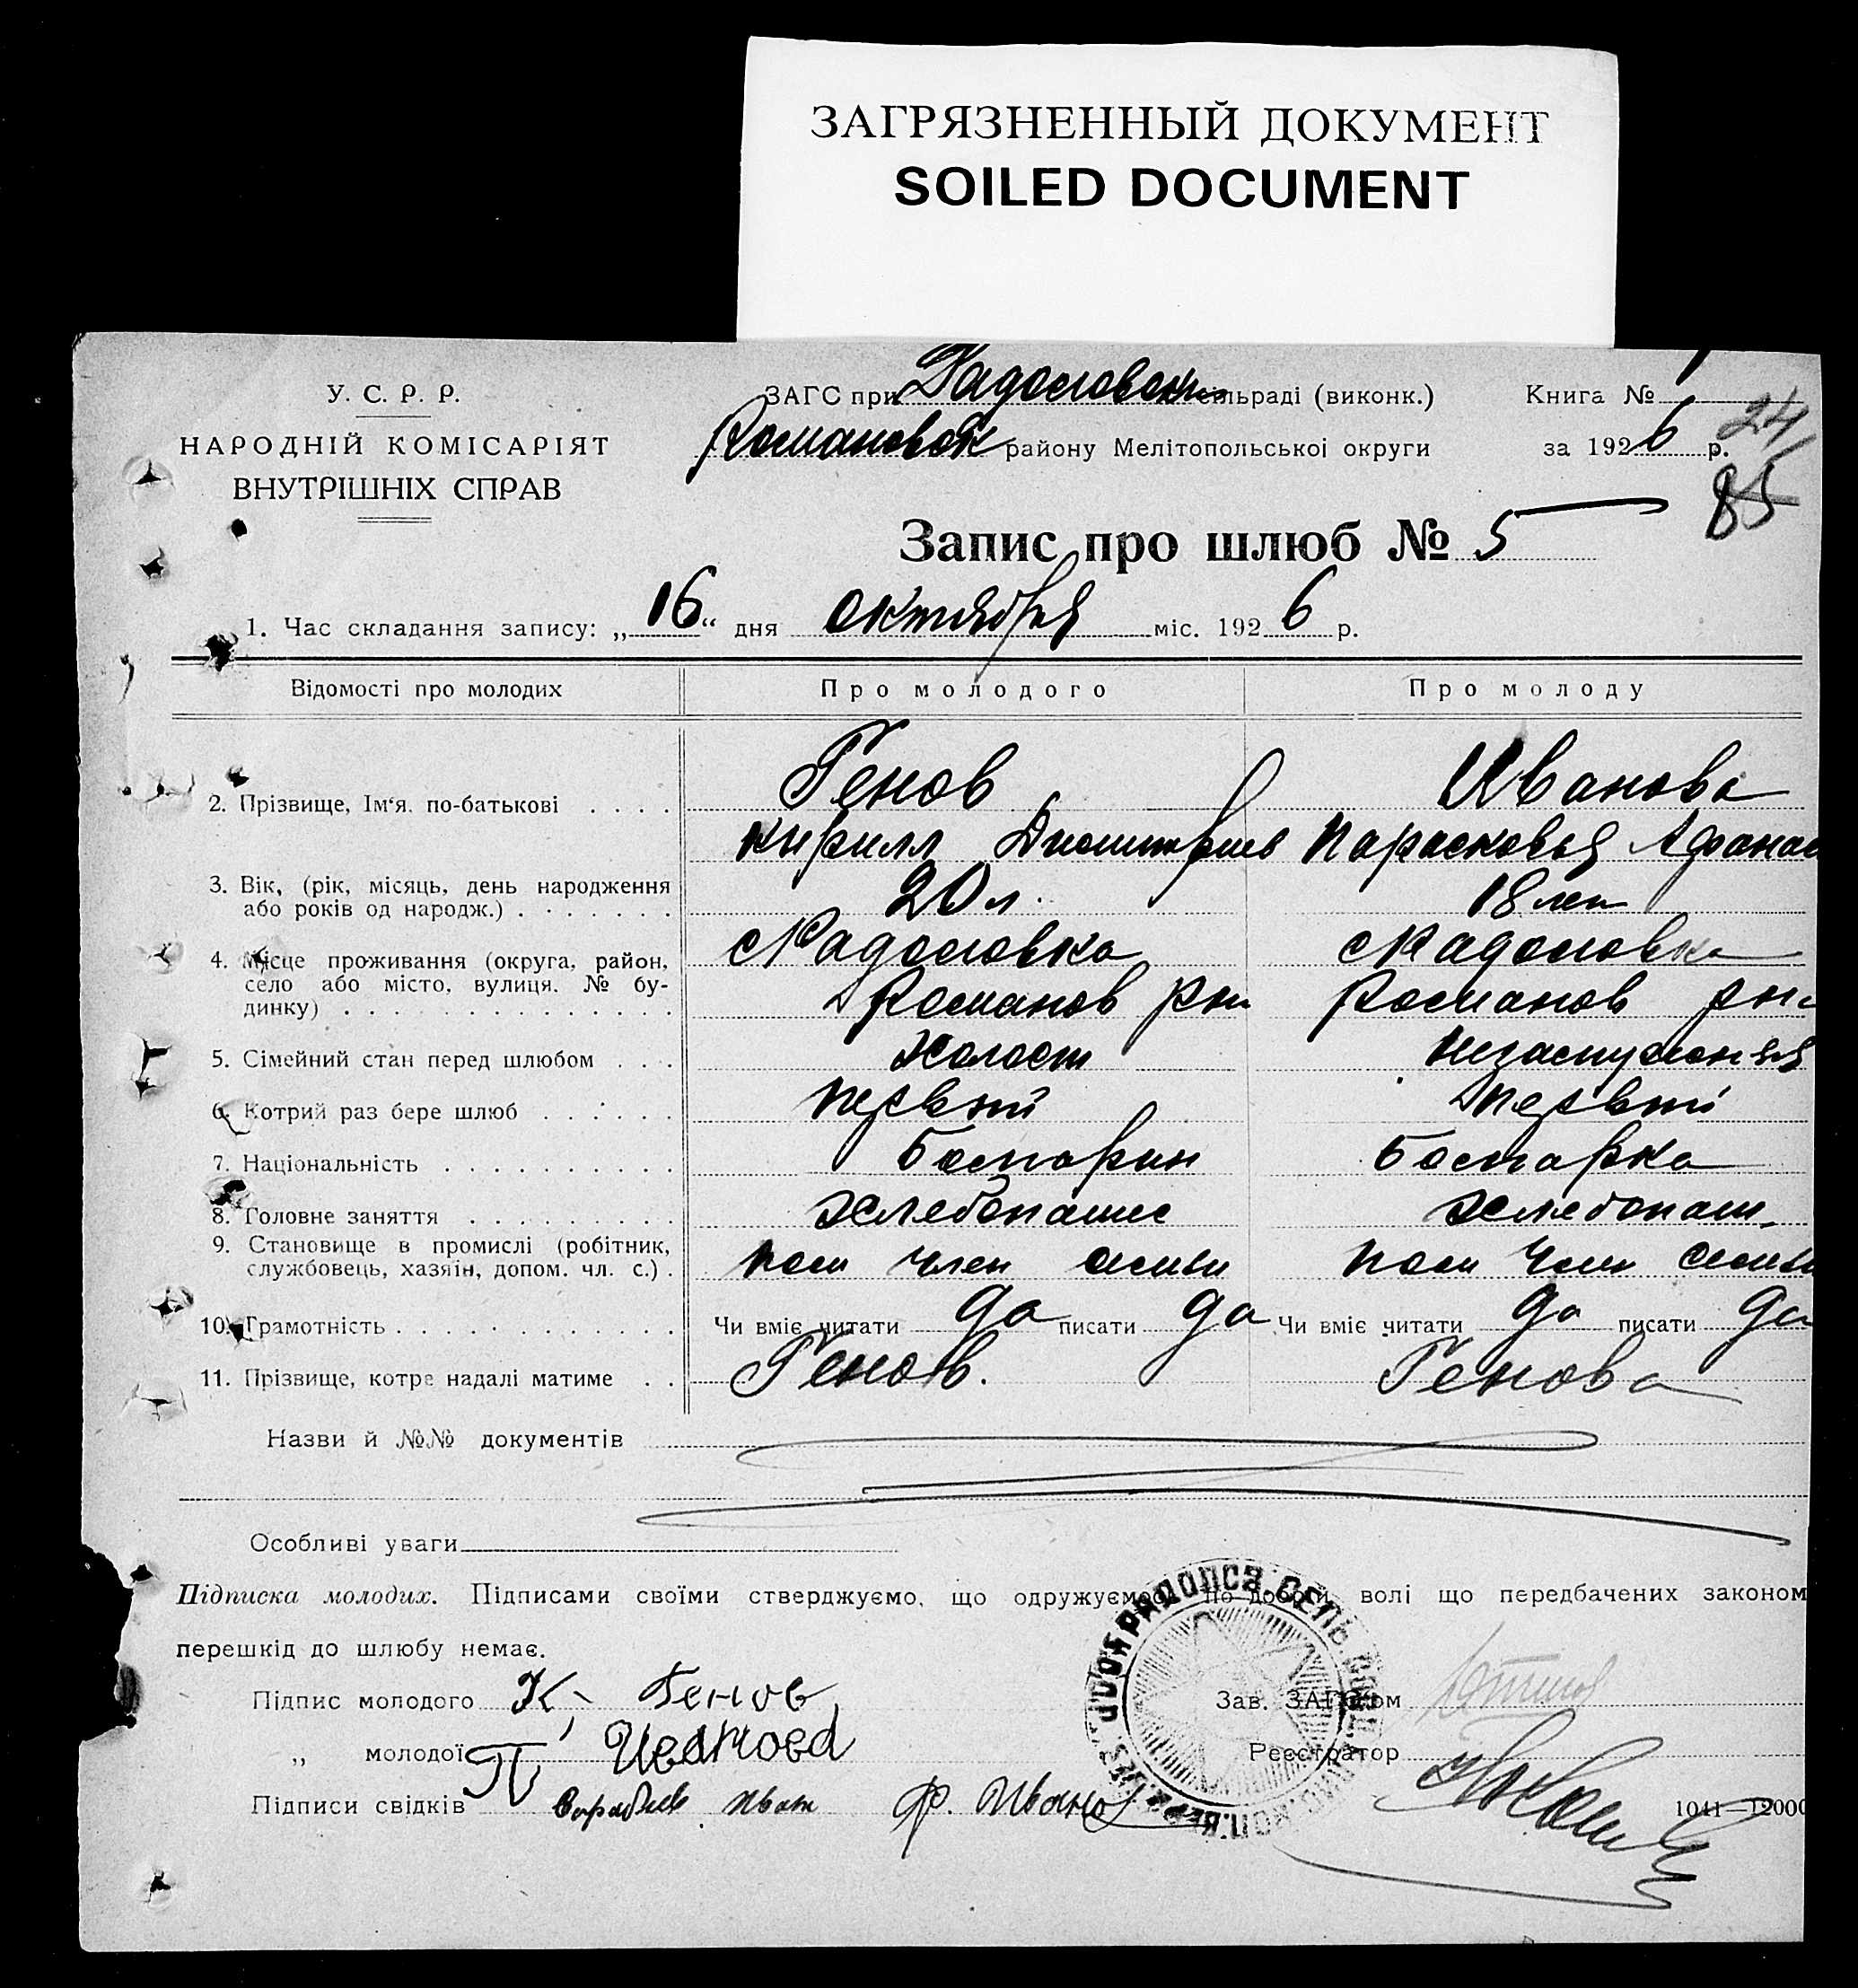 ЗАГРЯЗНЕННЫЙ ДОКУМЕНТ
SOILED DOCUMENT
У. С. Р. Р.
НАРОДНІЙ КОМІСАРІЯТ
ВНУТРІШНІХ СПРАВ
ЗАГС при сільраді (виконк.) Книга №
району Мелітопольської округи за 1926 р. 24
85
Запис про шлюб № 5
1. Час складання запису: „16“ дня Октября міс. 1926 р.
Відомості про молодих Про молодого Про молоду
2. Прізвище, Ім‘я, по-батькові Генов Иванова
Кирилл Парасковья Афанас
3. Вік, (рік, місяць, день народження або років од народж.) 20 л. 18 лет
4. Місце проживання (округа, район, село або місто, вулиця, № будинку)
Романов рн Романов рн
5. Сімейний стан перед шлюбом Холост незамужняя
6. Котрий раз бере шлюб первый первый
7. Національність болгарин болгарка
8. Головне заняття хлебопашец хлебопаш.
9. Становище в промислі (робітник, службовець, хазяїн, допом. чл. с.) пом член семьи пом член семьи
10. Грамотність Чи вміє читати да писати да Чи вміє читати да писати да
11. Прізвище, котре надалі матиме Генов. Генова
Назви й №№ документів
Особливі уваги
Підписка молодих. Підписами своїми стверджуємо, що одружуємось по добрій волі що передбачених законом
перешкід до шлюбу немає.
Підпис молодого К. Генов Зав. ЗАГС'ом
„ молодої П Иванова Реєстратор
Підписи свідків Иван Ф. Ивано 1041—12000